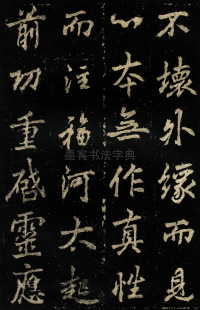 不壞外緣而見
心本無作真性
而注福河大起
前功重啟靈應
墨客书法字典